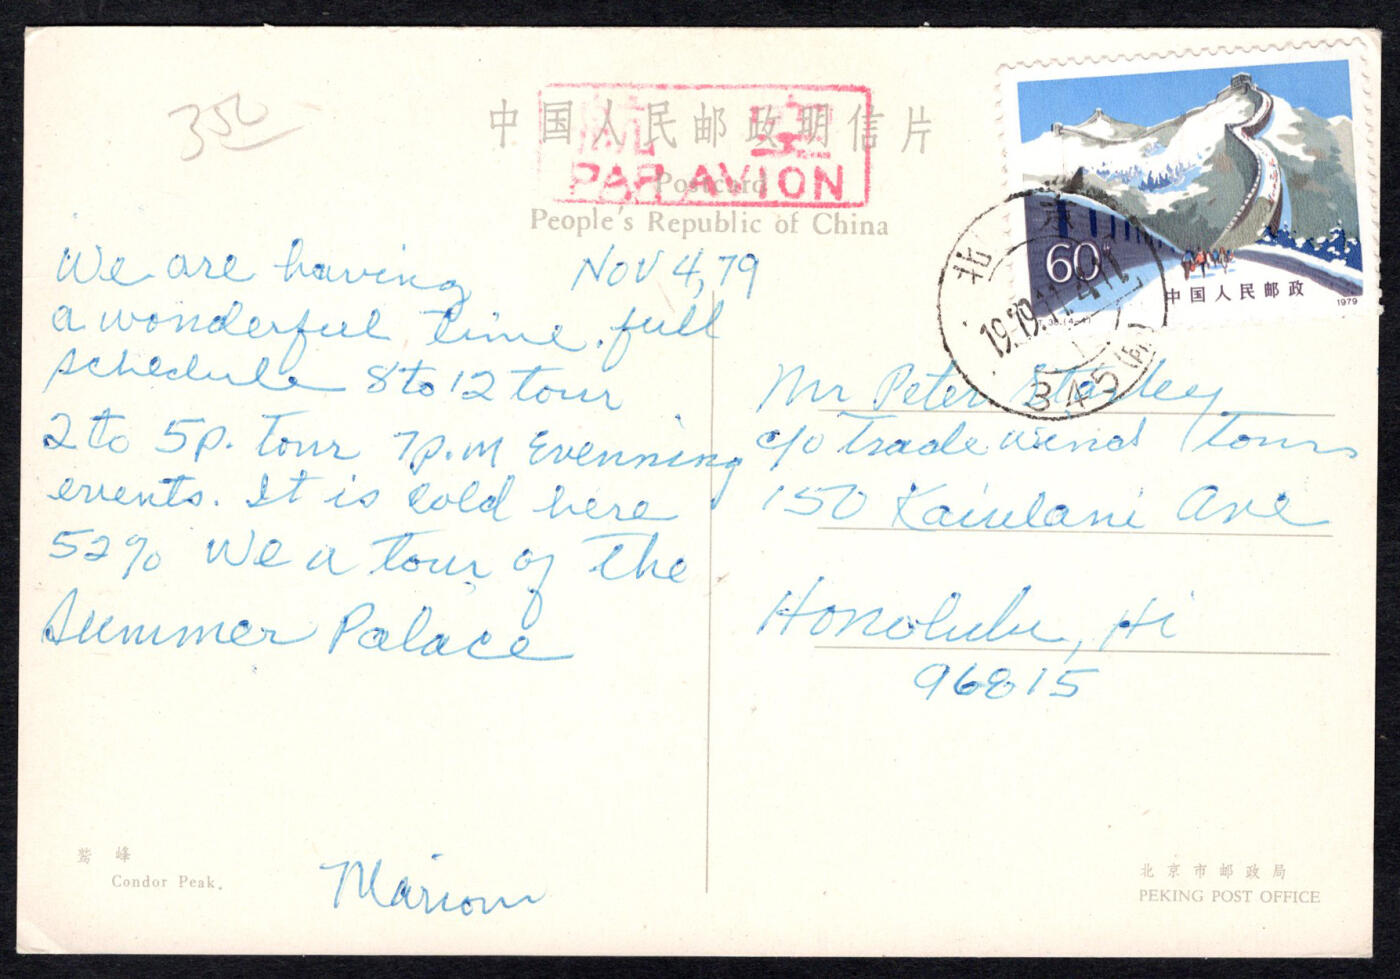 350
中国人民邮政明信片
PAR AVION
Postcard
People's Republic of China
60
中国人民邮政
1979
北京
1979.11.4
345
We are having
Nov 4, 79
a wonderful time. full
schedule 8 to 12 tour
2 to 5p. tour 7p.m Evenning
events. It is cold here
52% We a tour of the
Summer Palace
Marion
Mr Peter
c/o Trade wind Tours
150 Kaiulani Ave
Honolulu, Hi
96815
鹫峰
Condor Peak.
北京市邮政局
PEKING POST OFFICE